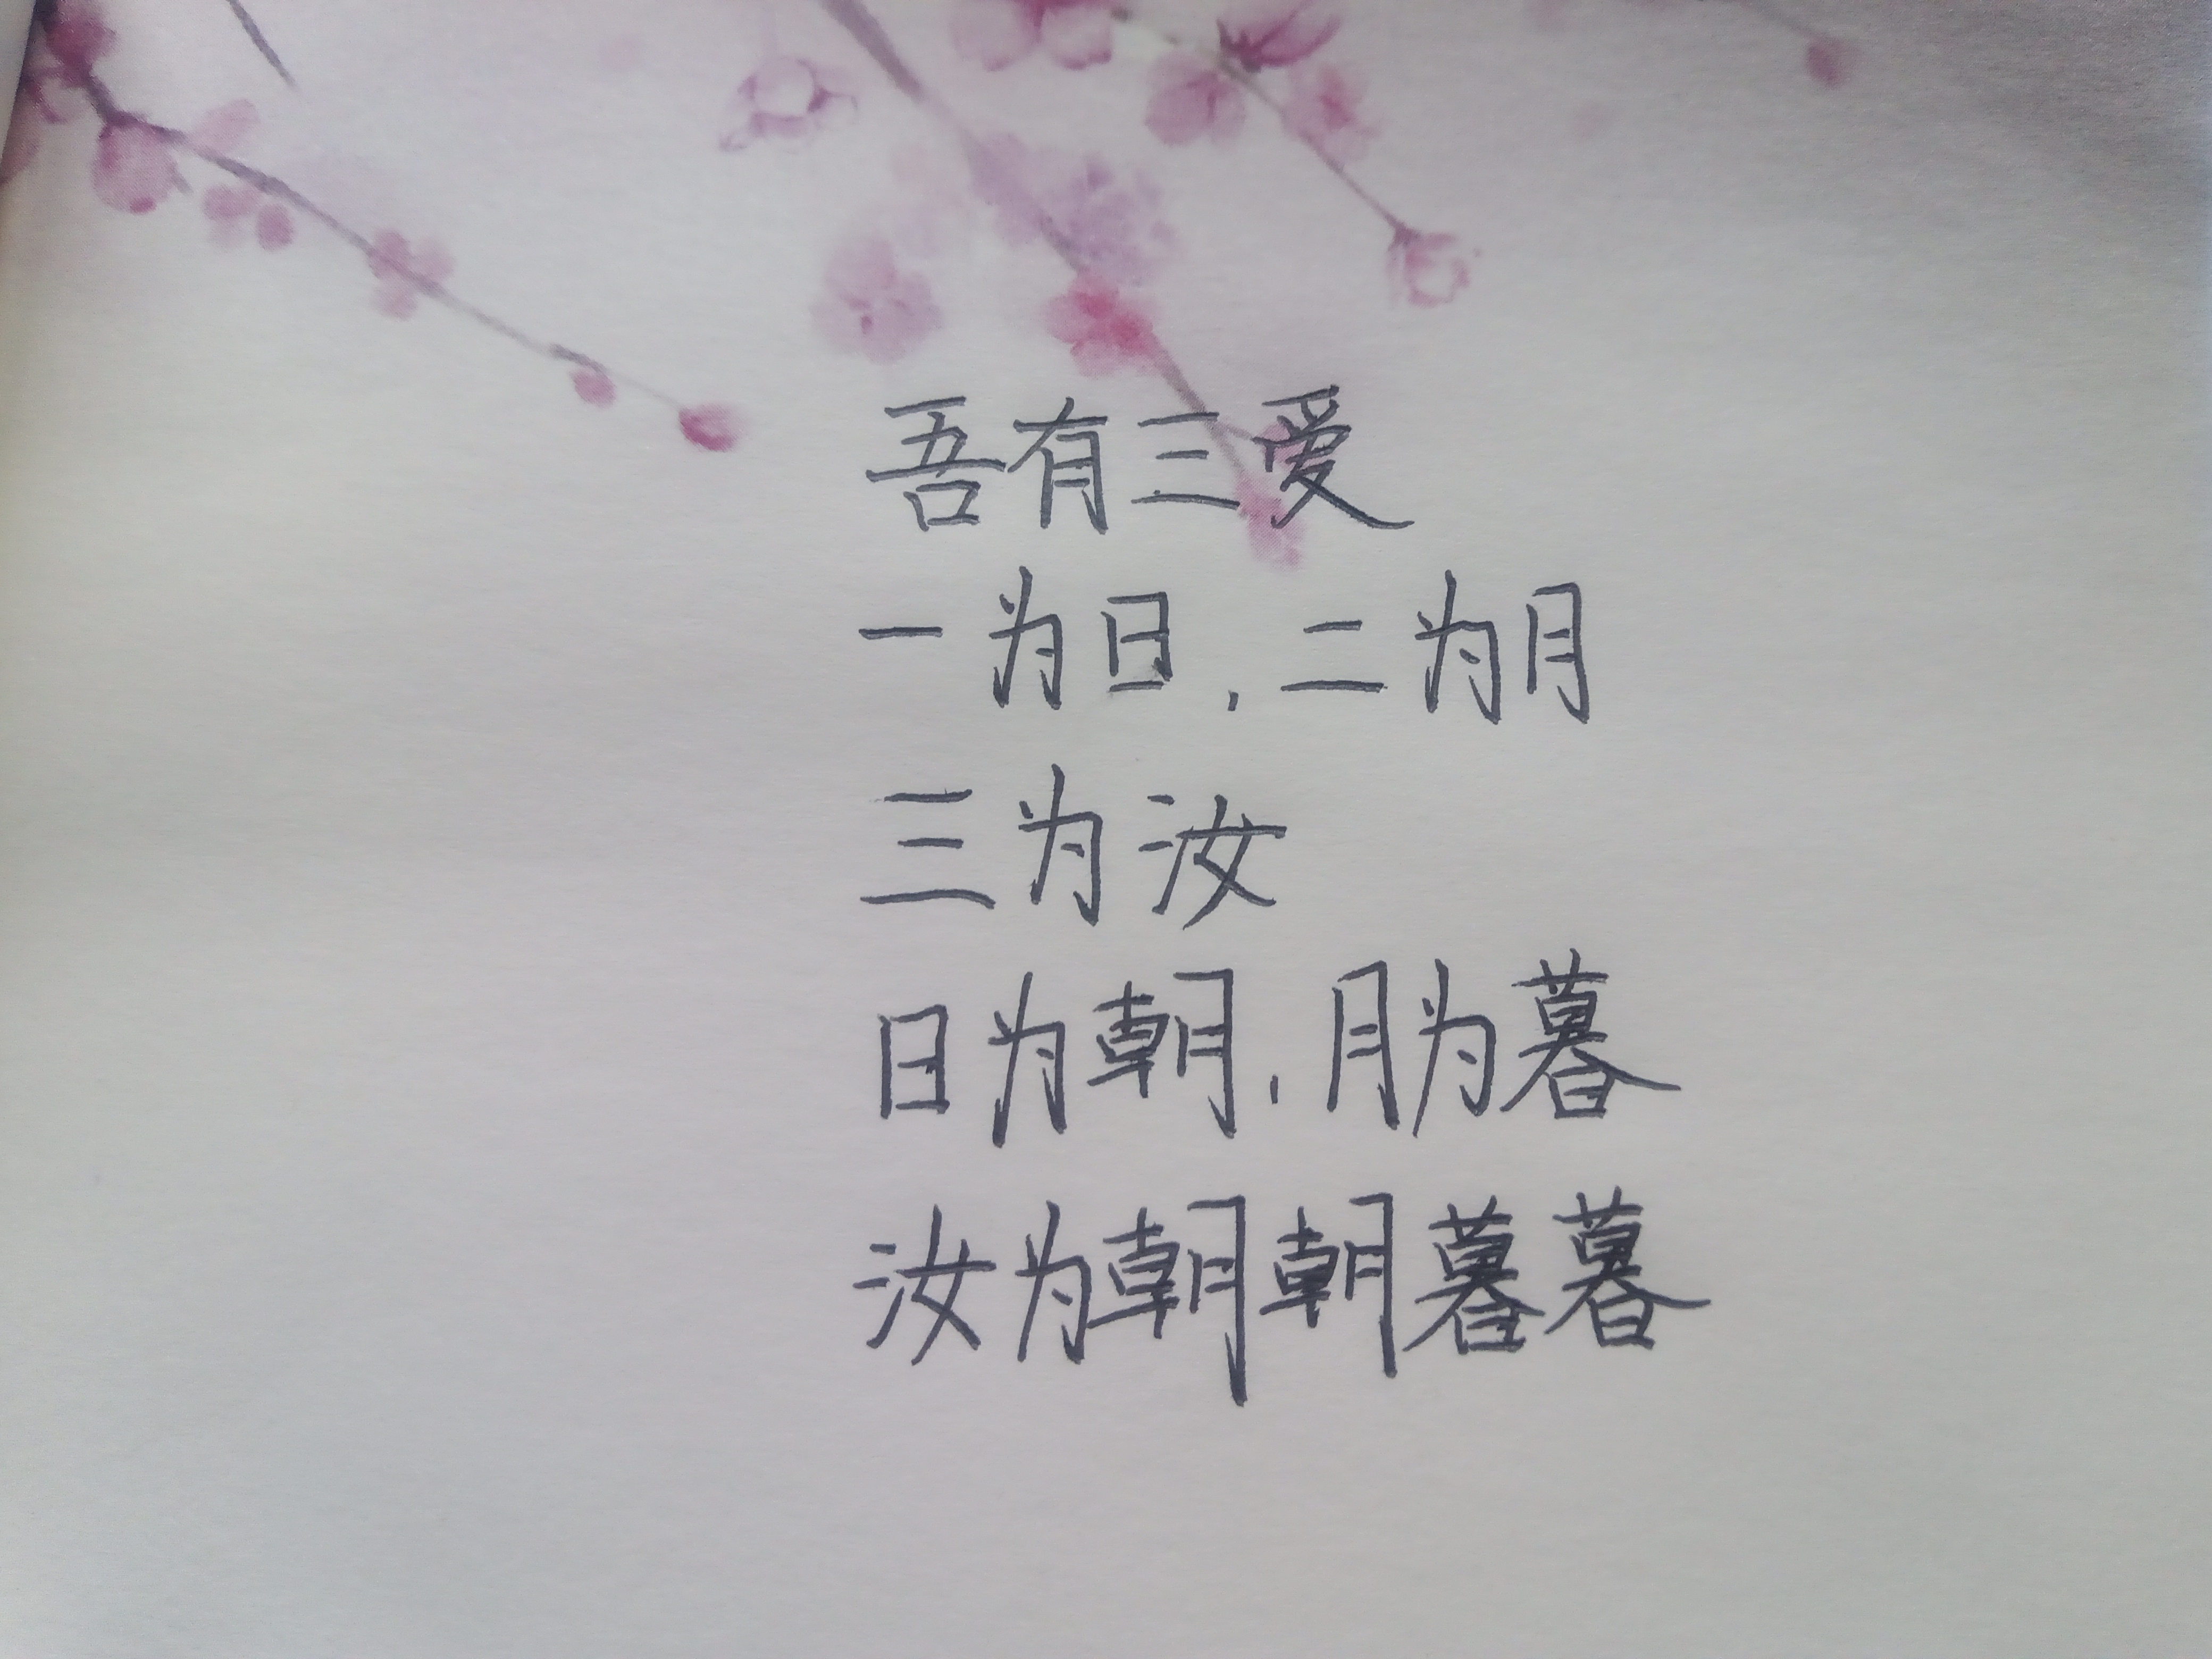 吾有三爱
一为日，二为月
三为汝
日为朝，月为暮
汝为朝朝暮暮